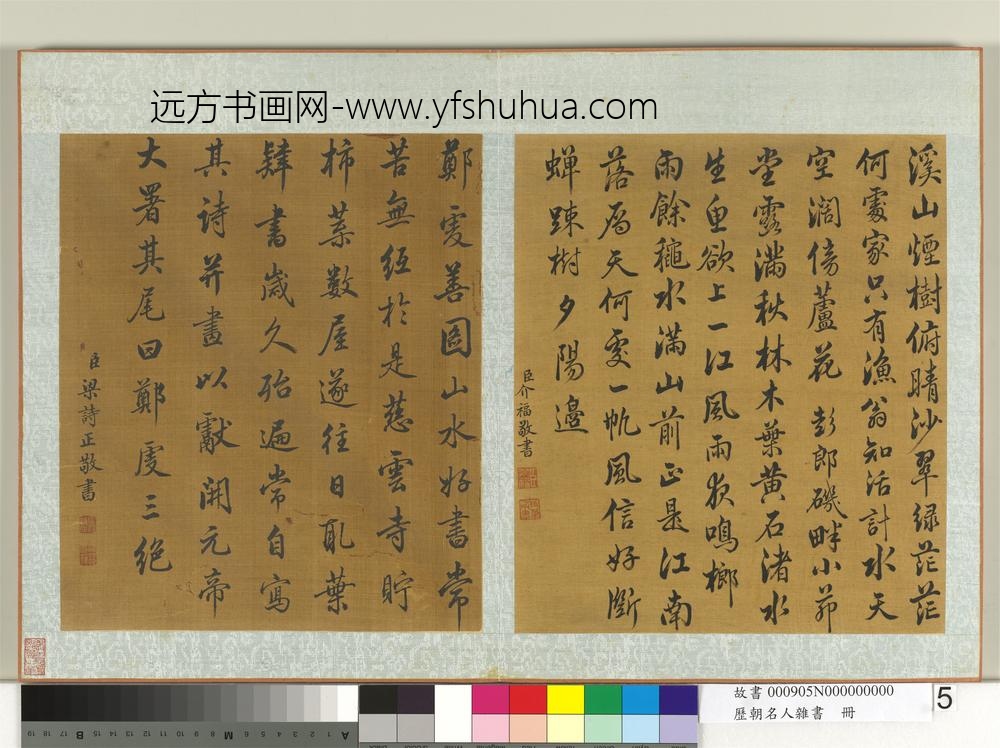 远方书画网-www.yfshuhua.com
溪山煙樹俯晴沙翠綠茫茫
何處家只有漁翁知活計水天
空濶傍蘆花 彭郎磯畔小茆
堂露滿秋林木葉黃石渚水
生魚欲上一江風雨夜鳴榔
雨餘穐水滿山前正是江南
落雁天何處一帆風信好斷
蟬踈樹夕陽邉
臣介福敬書
鄭虔善圖山水好書常
苦無紙於是慈雲寺貯
柿葉數屋遂往日取葉
肄書歲久殆遍常自寫
其詩并畫以獻開元帝
大署其尾曰鄭虔三絕
臣梁詩正敬書
故書 000905N000000000
歷朝名人雜書 冊
5
19 18 17 16 15 14 13 12 11 10 9 8 7 6 5 4 3 2 1
A
M
B